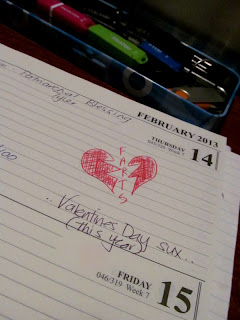 Patriarchal Blessing
Tyler
FEBRUARY 2013
THURSDAY
045/320 Week 7
14
FARTS
.. Valentines Day sux..
(this year)
FRIDAY
046/319 Week 7
15